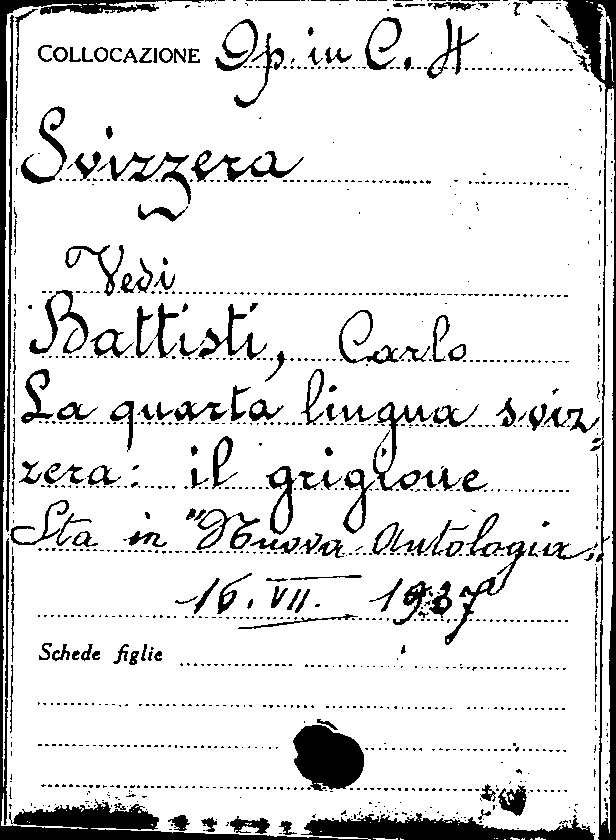 COLLOCAZIONE Op. in C. 4
Svizzera
Vedi
Battisti, Carlo
La quarta lingua sviz=
zera: il grigione
Sta in "Nuova Antologia"
16. VII. 1937
Schede figlie